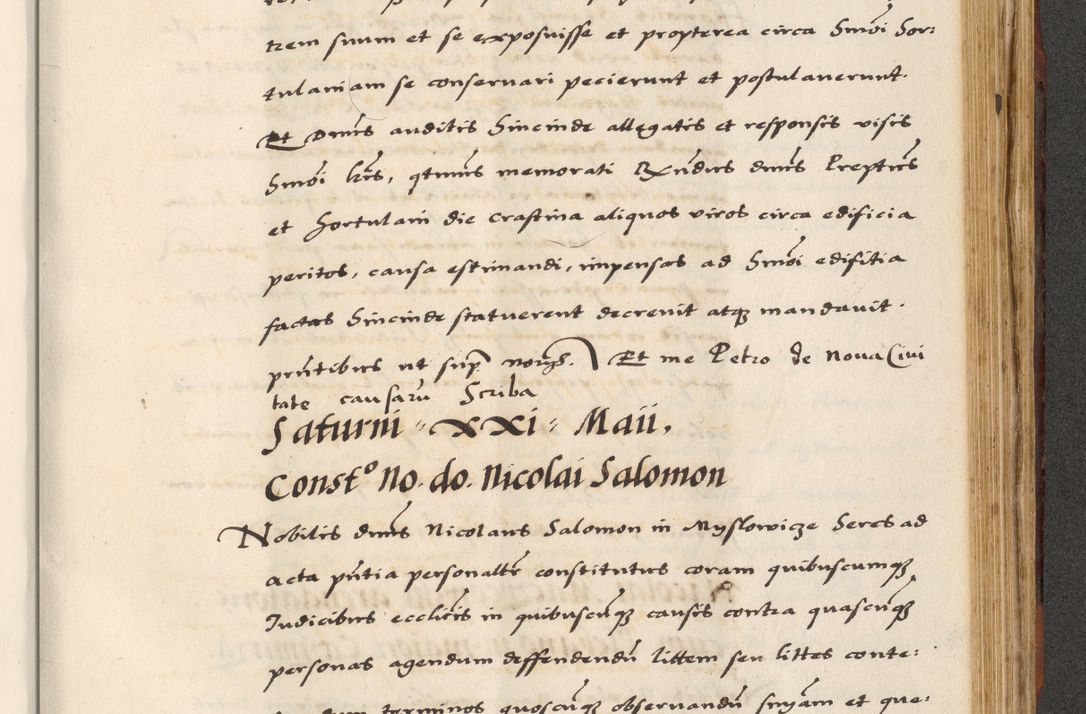 trem suum et se exposuisse et propterea circa Smoi Hor:
tulaniam se conservari pecierunt et postulaverunt.
Et Dnus auditis hincinde allegatis et responsis visis
Smoi lris, qtnus memorati Rxndus dnus Preptus
et Hortulani die crastina aliquos viros circa edificia
peritos, causa estimandi, impensas ad Smoi edifitia
factas hincinde statuerent decrevit atq mandavit.
pntibus ut sup Et me Petro de Nova Civi
tate causaru Scriba
Saturni " XXI " Maii,
Const° No. do. Nicolai Salomon
Nobilis dnus Nicolaus Salomon in Myslowicze heres ad
acta pntia personaltr constitutus coram quibuscumq
Iudicibus ecclicis in quibuscuq causis contra quascuq
personas agendum deffendendu littem seu littes conte:
terminos quoscuq observandu et que: